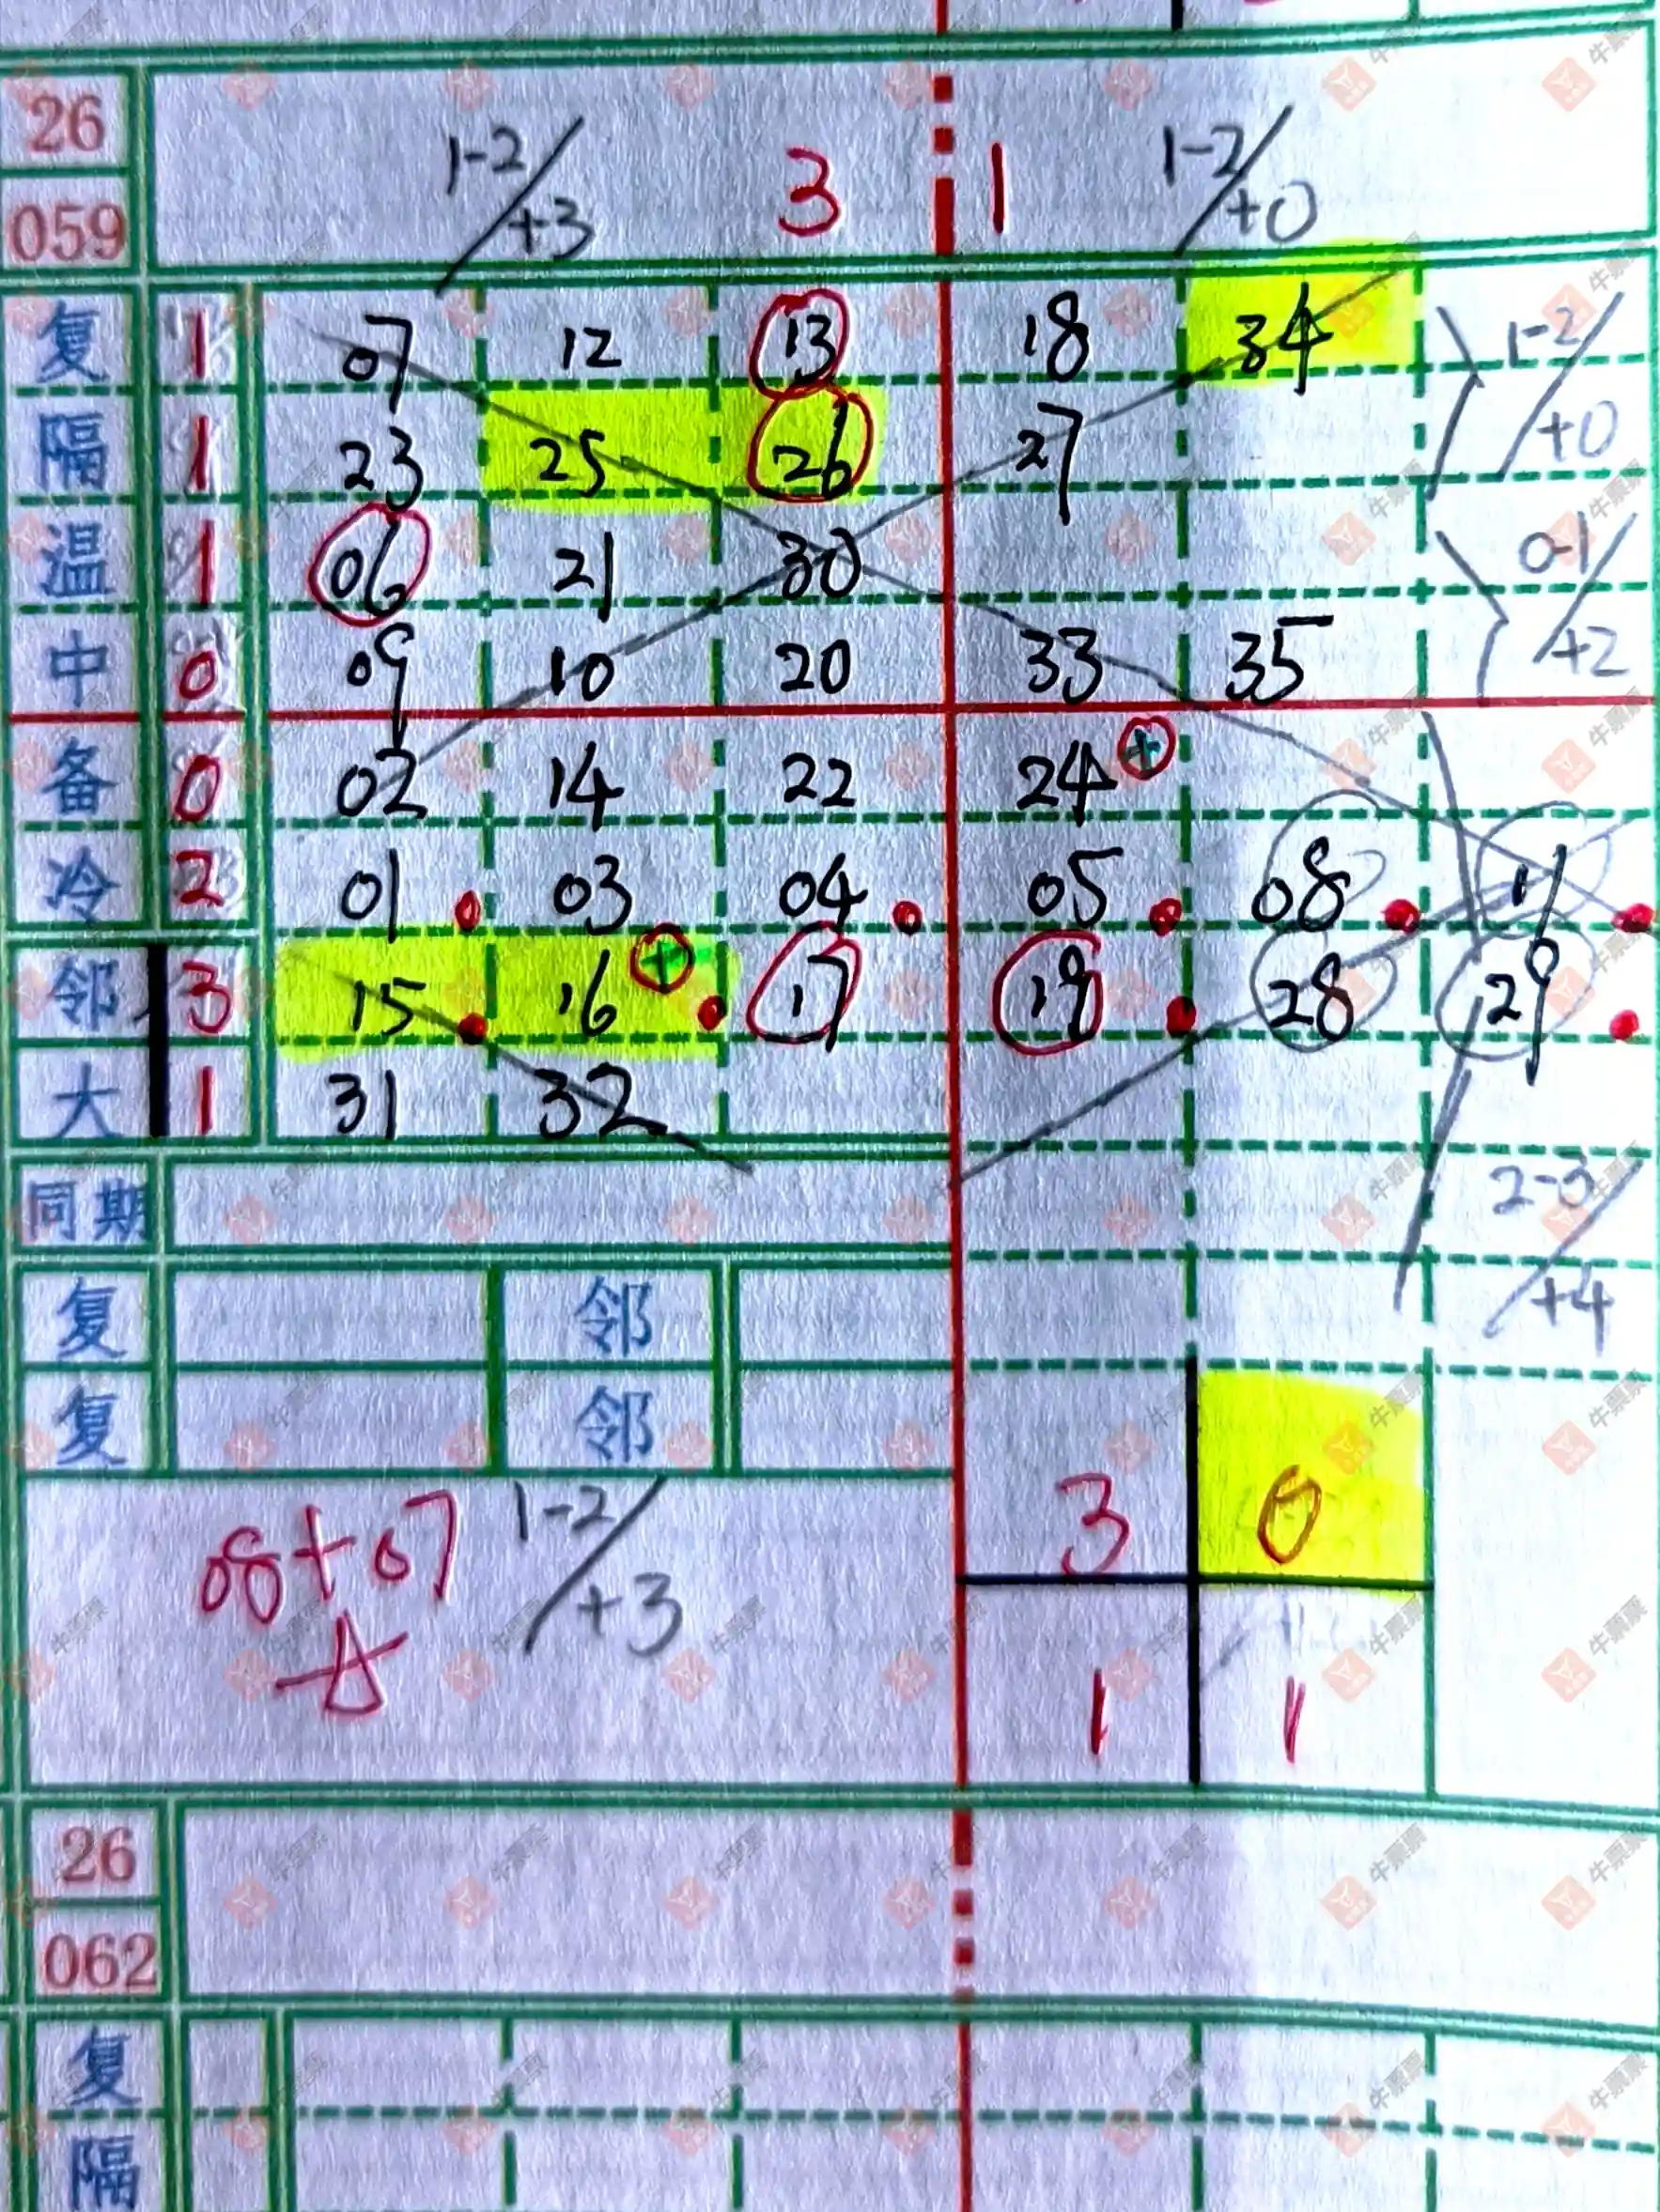 26
059
1-2/+3 3 1 1-2/+0
复 1 07 12 13 18 34 1-2/+0
隔 1 23 25 26 27
温 1 06 21 30 0-1/+2
中 0 09 10 20 33 35
备 0 02 14 22 24 +
冷 2 01 03 04 05 08 11
邻 3 15 16 + 17 19 28 29
大 1 31 32
同期 2-3/+4
复 邻
复 邻
08+07 1-2/+3 3 0
1 1
26
062
复
隔
牛票票